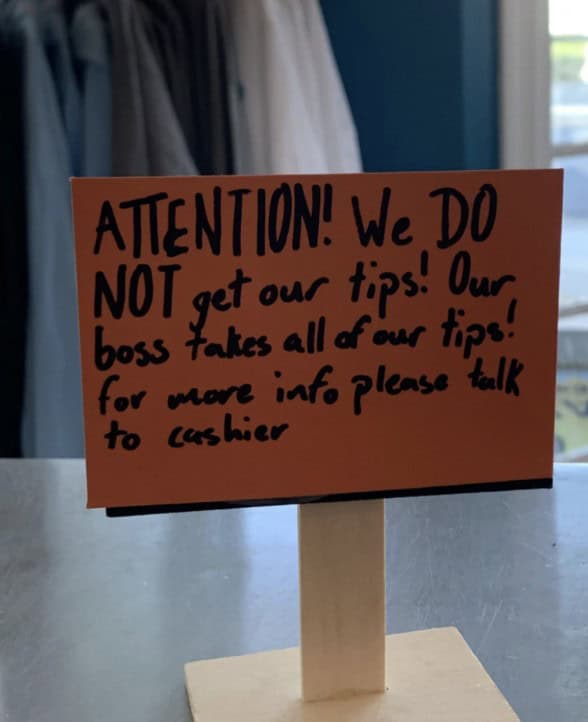 ATTENTION! We DO
NOT get our tips! Our
boss takes all of our tips!
for more info please talk
to cashier